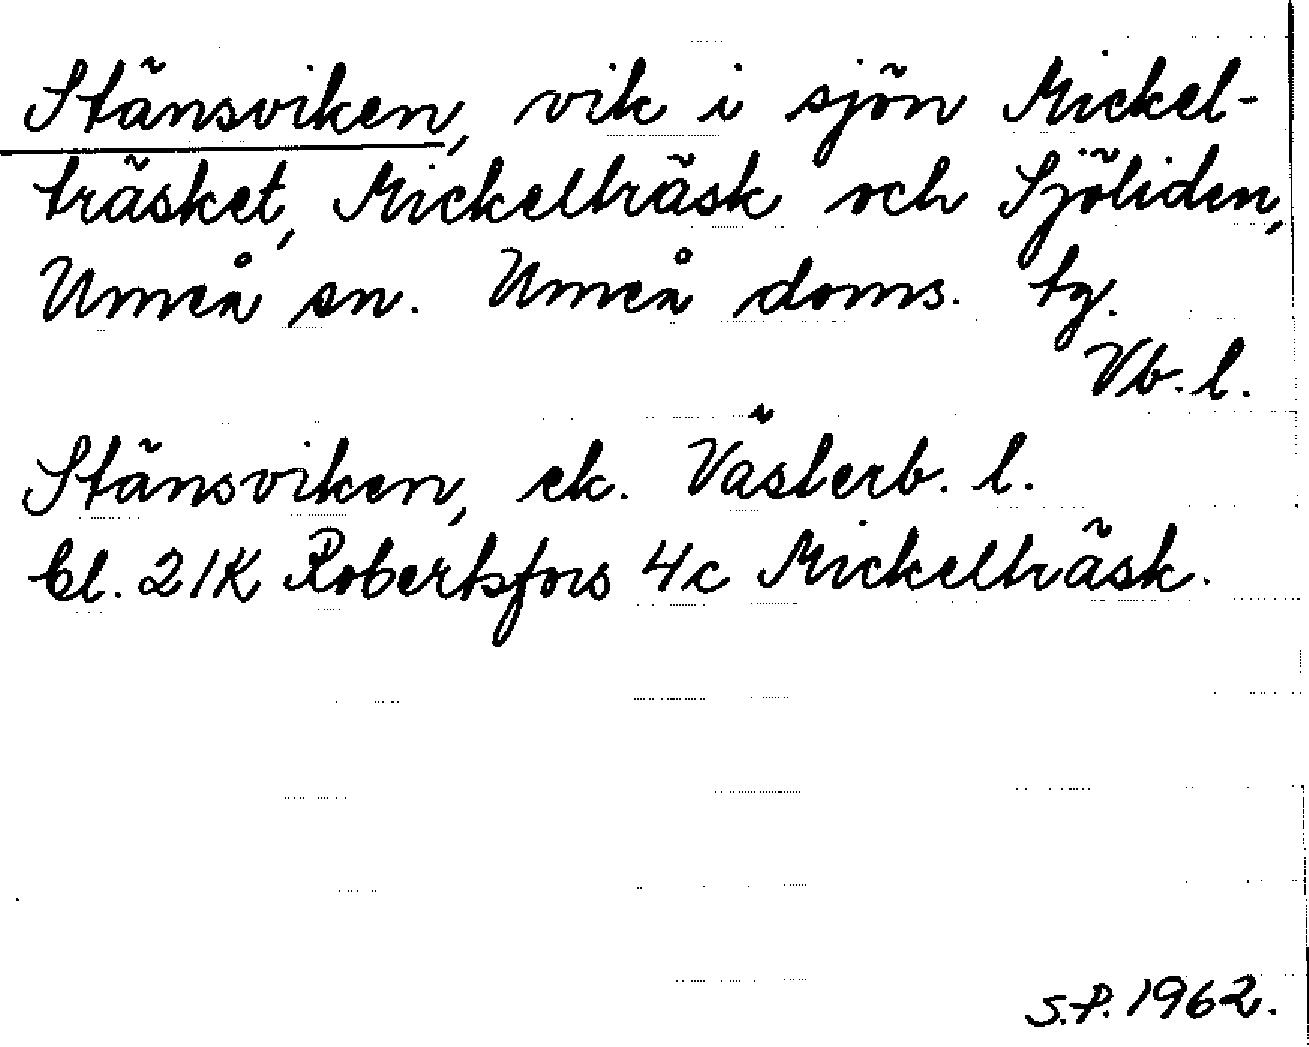 Stänsviken, vik i sjön Mickel-
träsket, Mickelträsk och Sjöliden,
Umeå sn. Umeå doms. tg.
Vb. l.
Stänsviken, ek. Västerb. l.
bl. 21K Robertsfors 4c Mickelträsk.
S.P. 1962.